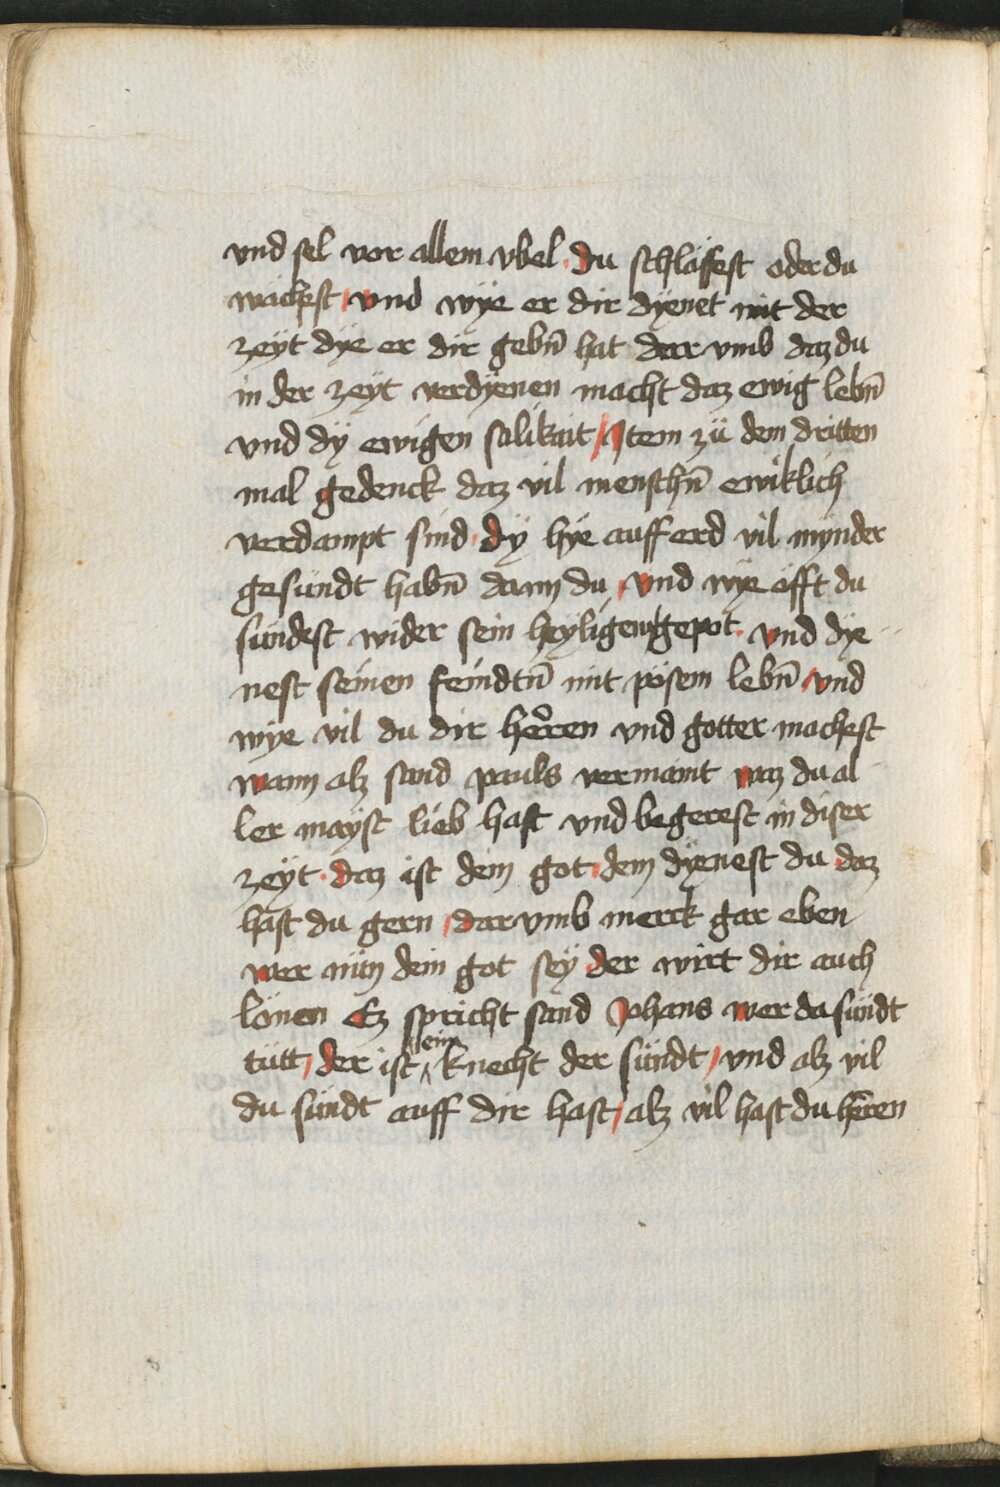 vnd sel vor allem vbel · du schläffest oder du
wachest / vnd wÿe er dir dÿenet mit der
zeÿt dÿe er dir gebn̄ hat darvmb daz du
in der zeÿt verdÿenen macht daz ewig lebn̄
vnd dÿ ewigen sälikait / Item zü dem dritten
mal gedenck daz vil menschn̄ ewiklich
verdampt sind · dÿ hÿe auff erd vil mÿnder
gesündt habn̄ dann du / vnd wÿe offt du
sündest wider sein heÿligen gepot · vnd dÿe
nest seinen feindtn̄ mit pösem lebn̄ / vnd
wÿe vil du dir herren vnd götter machest
wann alz sand pauls vermamt waz du al
ler maÿst lieb hast vnd begerest in diser
zeÿt · daz ist dein got / dem dÿenest du daz
hast du gern / darvmb merck gar eben
wer nün dein got seÿ der wirt dir auch
lönen Ez spricht sand Johans wer da sündt
tütt / der ist ein knecht der sündt / vnd alz vil
du sündt auff dir hast / alz vil hast du herren